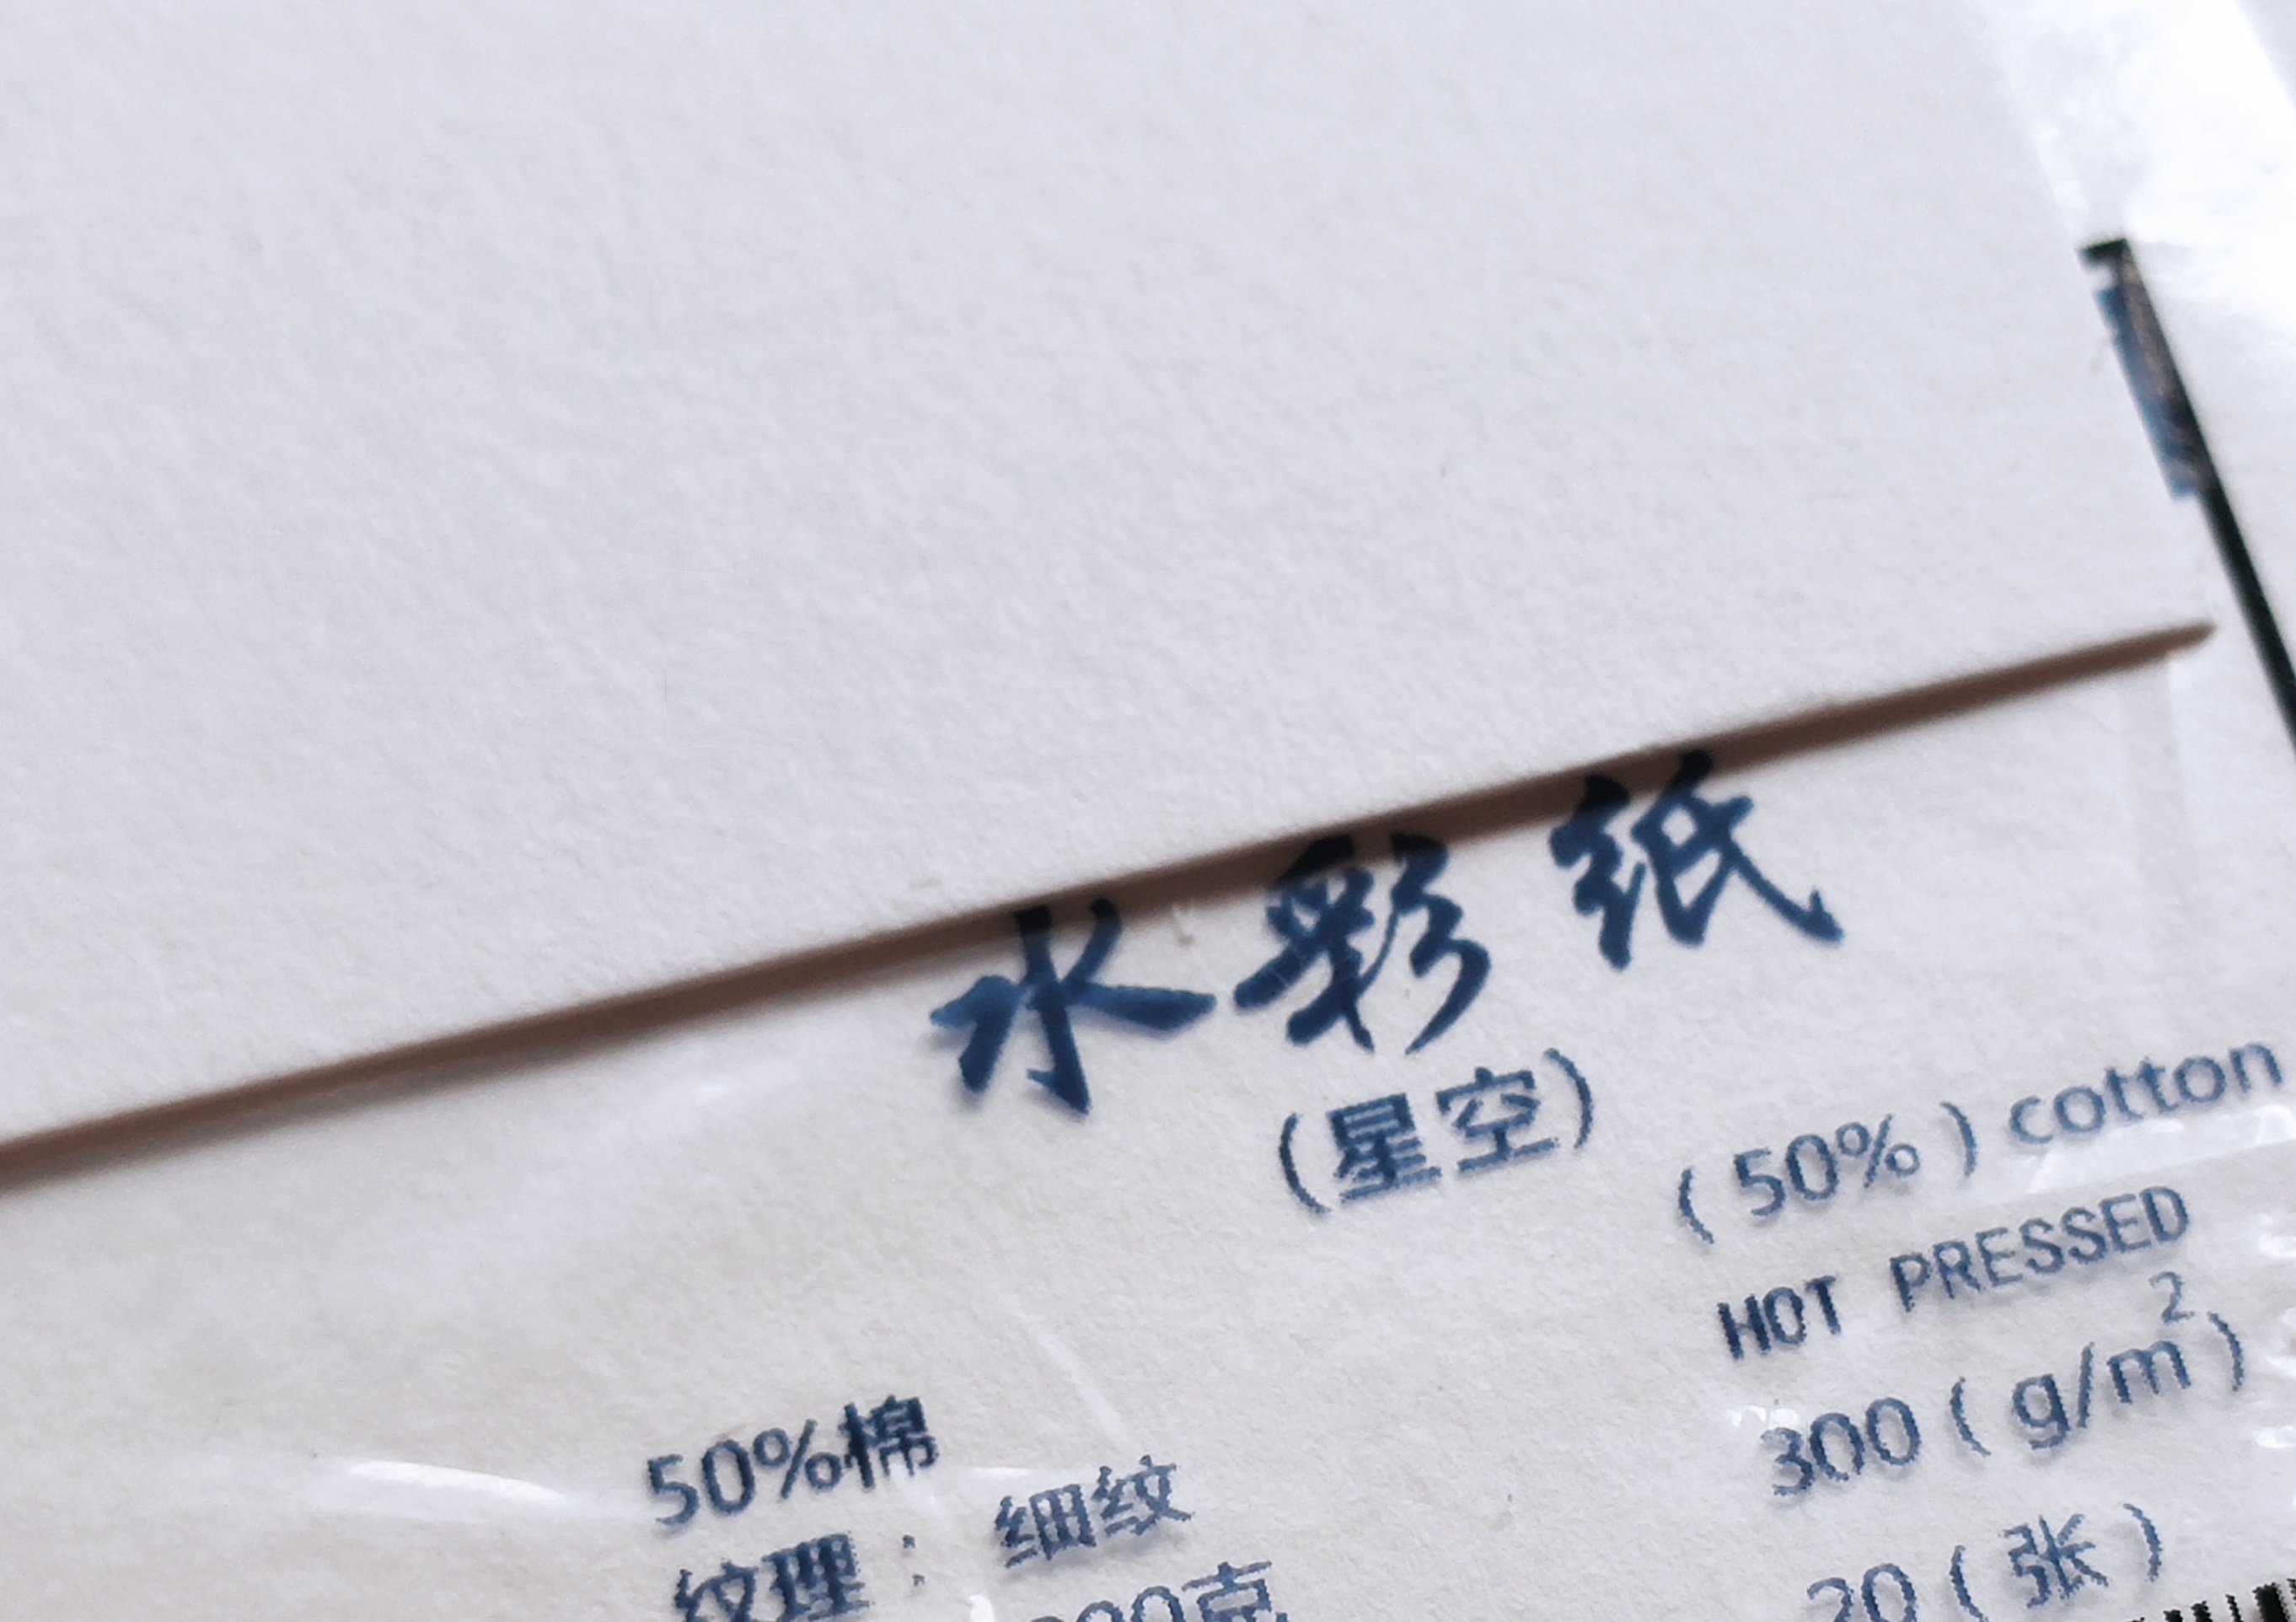 水彩纸
(星空)
(50%) cotton
HOT PRESSED
300 (g/m²)
20 (张)
50%棉
纹理: 细纹